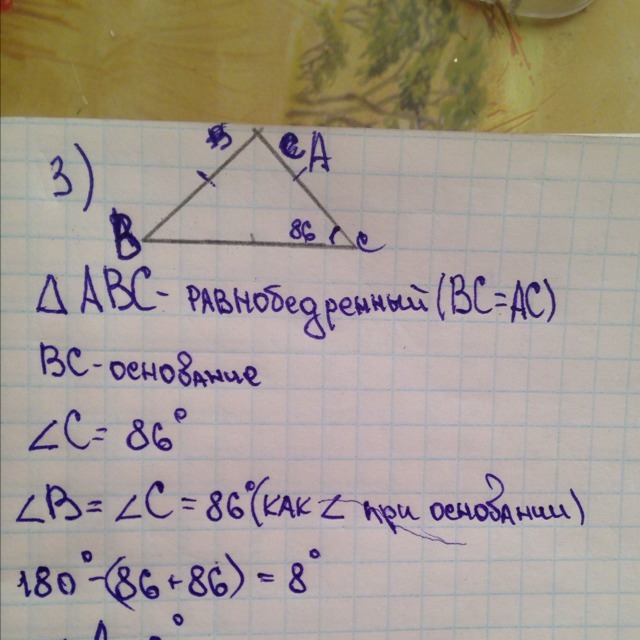 3)
A
B 86 C
Δ ABC - РАВНОбедренный (BC=AC)
BC-основание
∠C = 86°
∠B = ∠C = 86° (КАК ∠ при основании)
180° - (86 + 86) = 8°